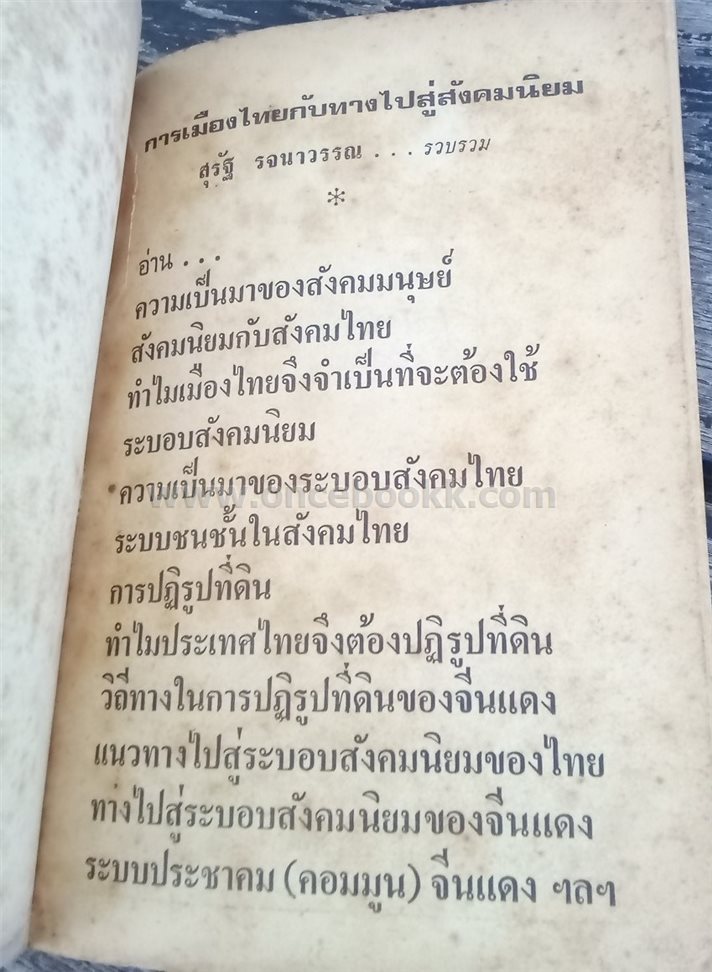 การเมืองไทยกับทางไปสู่สังคมนิยม
สุรัฐ รจนาวรรณ . . . รวบรวม
อ่าน . . .
ความเป็นมาของสังคมมนุษย์
สังคมนิยมกับสังคมไทย
ทำไมเมืองไทยจึงจำเป็นที่จะต้องใช้
ระบอบสังคมนิยม
ความเป็นมาของระบอบสังคมไทย
www.oncebookk.com
ระบบชนชั้นในสังคมไทย
การปฏิรูปที่ดิน
ทำไมประเทศไทยจึงต้องปฏิรูปที่ดิน
วิถีทางในการปฏิรูปที่ดินของจีนแดง
แนวทางไปสู่ระบอบสังคมนิยมของไทย
ทางไปสู่ระบอบสังคมนิยมของจีนแดง
ระบบประชาคม (คอมมูน) จีนแดง ฯลฯ